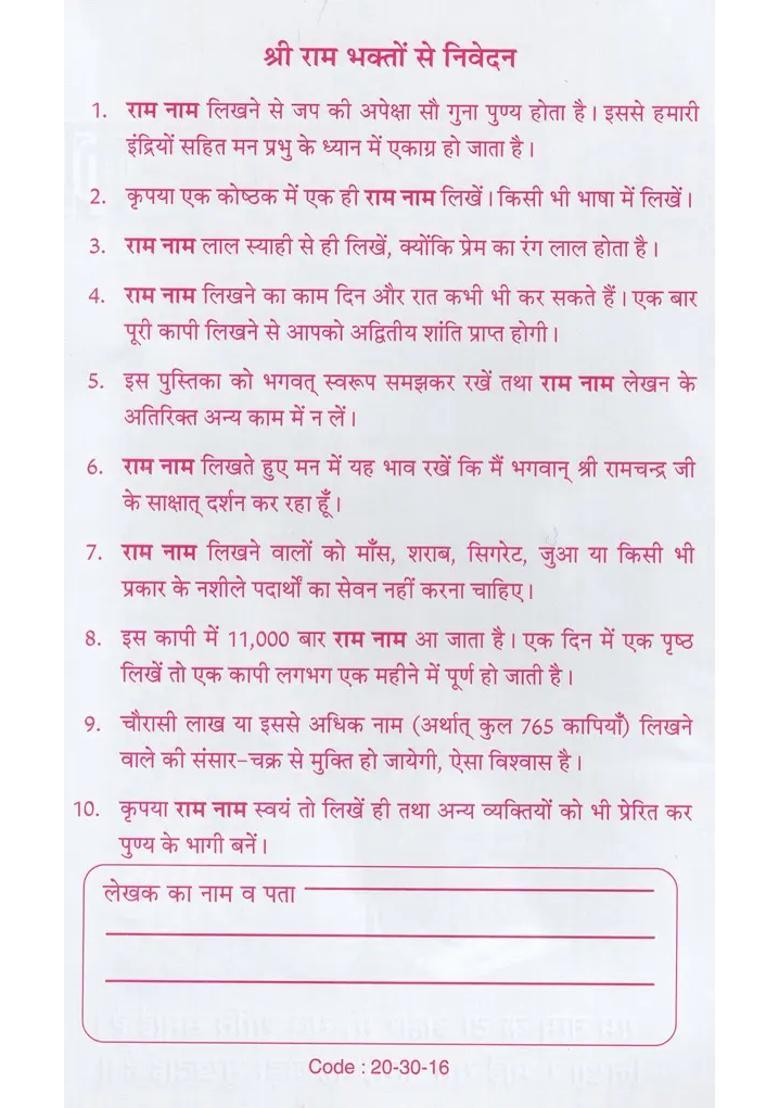 श्री राम भक्तों से निवेदन
1. राम नाम लिखने से जप की अपेक्षा सौ गुना पुण्य होता है। इससे हमारी
इंद्रियों सहित मन प्रभु के ध्यान में एकाग्र हो जाता है।
2. कृपया एक कोष्ठक में एक ही राम नाम लिखें। किसी भी भाषा में लिखें।
3. राम नाम लाल स्याही से ही लिखें, क्योंकि प्रेम का रंग लाल होता है।
4. राम नाम लिखने का काम दिन और रात कभी भी कर सकते हैं। एक बार
पूरी कापी लिखने से आपको अद्वितीय शांति प्राप्त होगी।
5. इस पुस्तिका को भगवत् स्वरूप समझकर रखें तथा राम नाम लेखन के
अतिरिक्त अन्य काम में न लें।
6. राम नाम लिखते हुए मन में यह भाव रखें कि मैं भगवान् श्री रामचन्द्र जी
के साक्षात् दर्शन कर रहा हूँ।
7. राम नाम लिखने वालों को माँस, शराब, सिगरेट, जुआ या किसी भी
प्रकार के नशीले पदार्थों का सेवन नहीं करना चाहिए।
8. इस कापी में 11,000 बार राम नाम आ जाता है। एक दिन में एक पृष्ठ
लिखें तो एक कापी लगभग एक महीने में पूर्ण हो जाती है।
9. चौरासी लाख या इससे अधिक नाम (अर्थात् कुल 765 कापियाँ) लिखने
वाले की संसार-चक्र से मुक्ति हो जायेगी, ऐसा विश्वास है।
10. कृपया राम नाम स्वयं तो लिखें ही तथा अन्य व्यक्तियों को भी प्रेरित कर
पुण्य के भागी बनें।
लेखक का नाम व पता
Code : 20-30-16